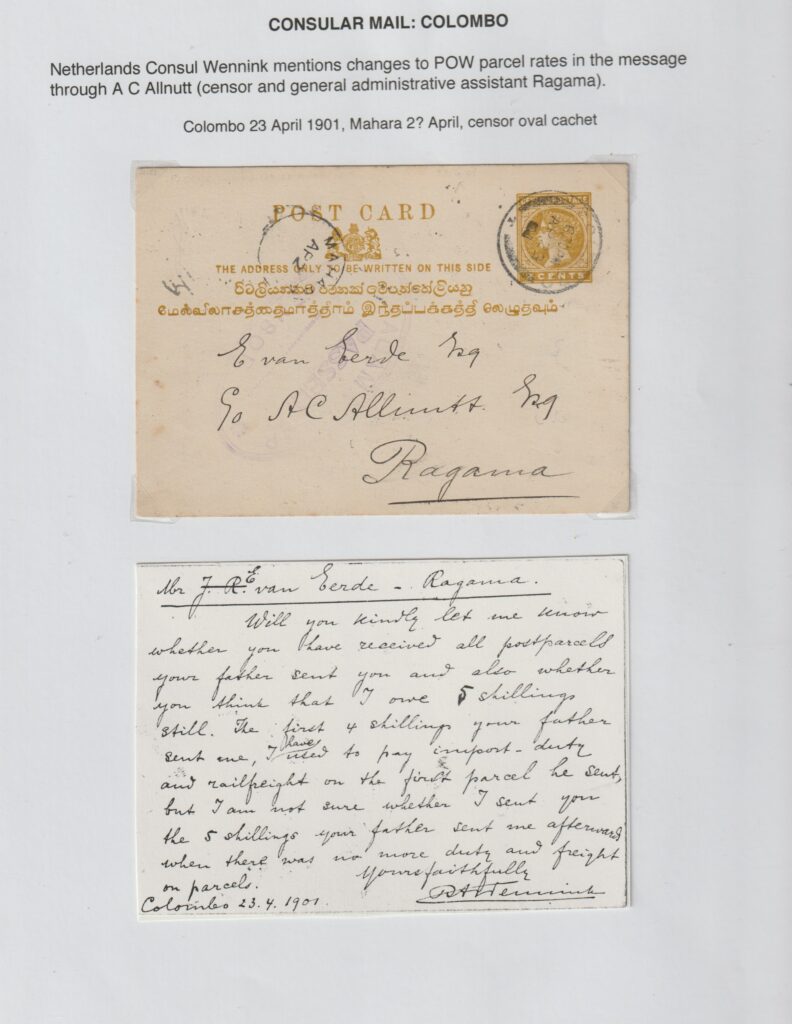 CONSULAR MAIL: COLOMBO
Netherlands Consul Wennink mentions changes to POW parcel rates in the message
through A C Allnutt (censor and general administrative assistant Ragama).
Colombo 23 April 1901, Mahara 2? April, censor oval cachet
POST CARD
CENTS
MAHARA
AP 2
THE ADDRESS ONLY TO BE WRITTEN ON THIS SIDE
மேல்விலாசத்தைமாத்திரம் இந்தப்பக்கத்தி லெழுதவும்
PASSED
E van Eerde Esq
C/o A C Allnutt. Esq
Ragama
Mr J. R. E van Eerde - Ragama.
Will you kindly let me know
whether you have received all postparcels
your father sent you and also whether
you think that I owe 5 shillings
still. The first 4 shillings your father
sent me, I have used to pay import-duty
and railfreight on the first parcel he sent,
but I am not sure whether I sent you
the 5 shillings your father sent me afterward
when there was no more duty and freight
on parcels. Yours faithfully
Colombo 23.4.1901.